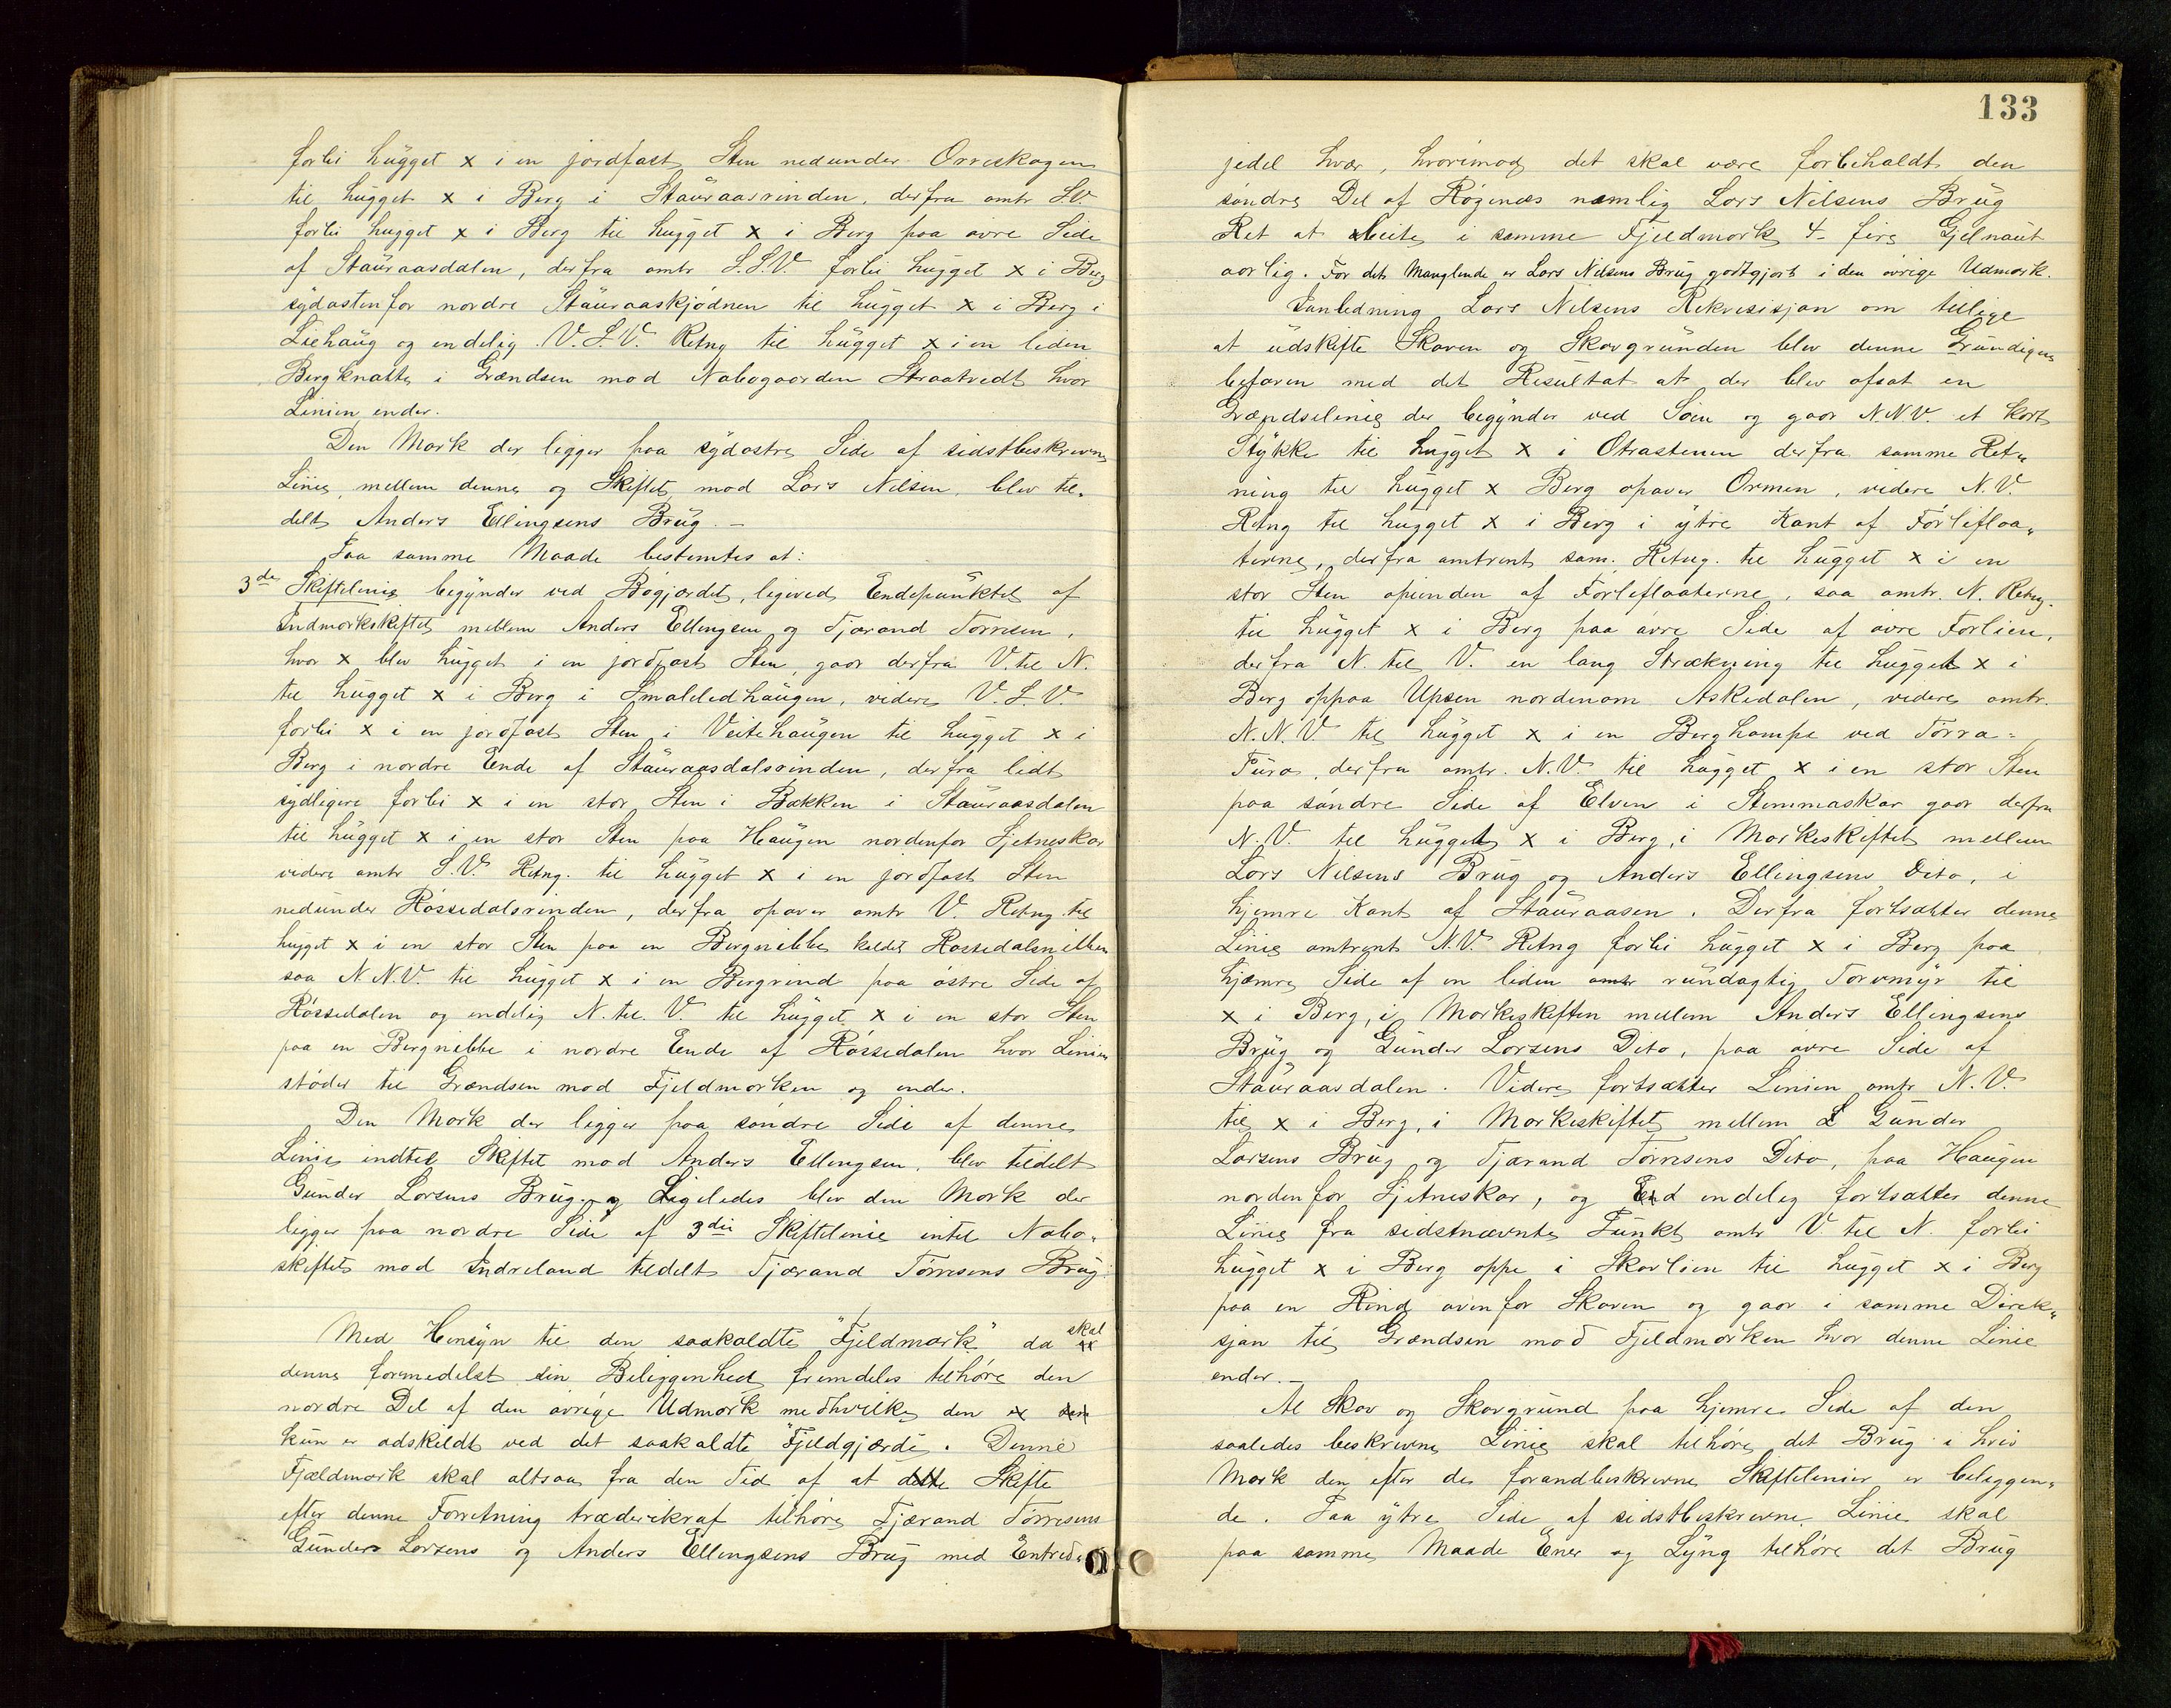 forbi hugget x i en jordfast Sten nedunder Orreskogen
til hugget x i Berg i Stauraasrinden, derfra omtr S.V.
forbi hugget x i Berg til hugget x i Berg paa øvre Side
af Stauraasdalen, derfra omtr S.S.V. forbi hugget x i Berg
sydøstenfor nordre Stauraaskjødnen til hugget x i Berg i
Liehaug og endelig V.S.V. Retng til hugget x i en liden
Bergknatte i Grændsen mod Nabogaarden Straatvedt hvor
Linien ender.
Den Mark der ligger paa sydøstre Side af sidstbeskrevne
Linie, mellem denne og Skiftet mod Lars Nilsen, blev til„
delt Anders Ellingsens Brug. –
Paa samme Maade bestemtes at:
3de Skiftelinie begynder ved Bøgjordet, ligeved Endepunktet af
Indmarkskiftet mellem Anders Ellingsen og Tjærand Tørresen,
hvor x blev hugget i en jordfast Sten, gaar derfra V. til N.
til hugget x i Berg i Smaleledhaugen, videre V.S.V.
forbi x i en jordfast Sten i Veitehaugen til hugget x i
Berg i nordre Ende af Stauraasdalsrinden, derfra lidt
sydligere forbi x i en stor Sten i Bækken i Stauraasdalen
til hugget x i en stor Sten paa Haugen nordenfor Sjetneskar
videre omtr S.V. Retng. til hugget x i en jordfast Sten
nedunder Røssedalsrinden, derfra opover omtr V. Retng til
hugget x i en stor Sten paa en Bergnibbe kaldet Røssedalsnibben
saa N.N.V. til hugget x i en Bergrind paa østre Side af
Røssedalen og endelig N. til V. til hugget x i en stor Sten
paa en Bergnibbe i nordre Ende af Røssedalen hvor Linien
støder til Grændsen mod Fjeldmarken og ender.
Den Mark der ligger paa søndre Side af denne
Linie indtil Skiftet mod Anders Ellingsen, blev tildelt
Gunder Larsens Brug. og Ligeledes blev den Mark der
ligger paa nordre Side af 3die Skiftelinie intil Nabo„
skiftet mod Indreland tildelt Tjærand Tørresens Brug.
Med Hensyn til den saakaldte "Fjeldmark" da skal
denne formedelst sin Beliggenhed fremdeles tilhøre den
nordre Del af den øvrige Udmark medhvilke den
kun er adskildt ved det saakaldte Fjeldgjærde. Denne
Fjældmark skal altsaa fra den Tid af at dette Skifte
efter denne Forretning træderikraf tilhøre Tjærand Tørresens
Gunders Larsens og Anders Ellingsens Brug med Entred„
133
jedel hvær, hvorimod det skal være forbeholdt den
søndre Del af Røgenæs næmlig Lars Nilsens Brug
Ret at beite i samme Fjeldmark 4 – fire Gjelnaut
aarlig. For det Manglende er Lars Nilsens Brug godtgjort i den øvrige Udmark.
Ianledning Lars Nilsens Rekvisisjon om tillige
at udskifte Skoven og Skovgrunden blev denne Grundigen
befaren med det Resultat at der blev afsat en
Grændselinie der begynder ved Søen og gaar N.N.V. et kort
Stykke til hugget x i Otrastenen derfra samme Ret„
ning til hugget x Berg opover Ormen, videre N.V.
Retng til hugget x i Berg i ytre Kant af Førlifloa„
terne, derfra omtrent sam. Retng. til hugget x i en
stor Sten opunden af Førlefloaterne, saa omtr. N. Retng.
til hugget x i Berg paa øvre Side af øvre Førlien,
derfra N. til V. en lang Strækning til hugget x i
Berg oppaa Upsen nordenom Askedalen, videre omtr.
N.N.V til hugget x i en Berghampe ved Tørra=
Furo, derfra omtr. N.V. til hugget x i en stor Sten
paa søndre Side af Elven i Stemmaskar gaar derfra
N.V. til hugget x i Berg, i Markeskiftet mellem
Lars Nilsens Brug og Anders Ellingsens Dito, i
hjemre Kant af Stauraasen. Derfra fortsætter denne
Linie omtrent N.V. Retng forbi hugget x i Berg paa
hjæmre Side af en liden rundagtig Torvmyr til
x i Berg, i Markeskiften mellem Anders Ellingsens
Brug og Gunder Larsens Dito, paa øvre Side af
Stauraasdalen. Videre fortsætter Linien omtr N.V.
til x i Berg, i Markeskiftet mellem Gunder
Larsens Brug og Tjærand Tørresens Dito, paa Haugen
nordenfor Sjetneskar, og endelig fortsætter denne
Linie fra sidstnævnte Punkt omtr V. til N. forbi
hugget x i Berg oppe i Skorlien til hugget x i Berg
paa en Rind ovenfor Skoven og gaar i samme Direk„
sjon til Grændsen mod Fjeldmarken hvor denne Linie
ender. –
Al Skov og Skovgrund paa hjemre Side af den
saaledes beskrevne Linie skal tilhøre det Brug i hvis
Mark den efter de forandbeskrevne Skiftelinier er beliggen„
de. Paa ytre Side af sidstbeskrevne Linie skal
paa samme Maade Ener og Lyng tilhøre det Brug